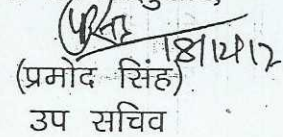 18/12/12
(प्रमोद सिंह)
उप सचिव